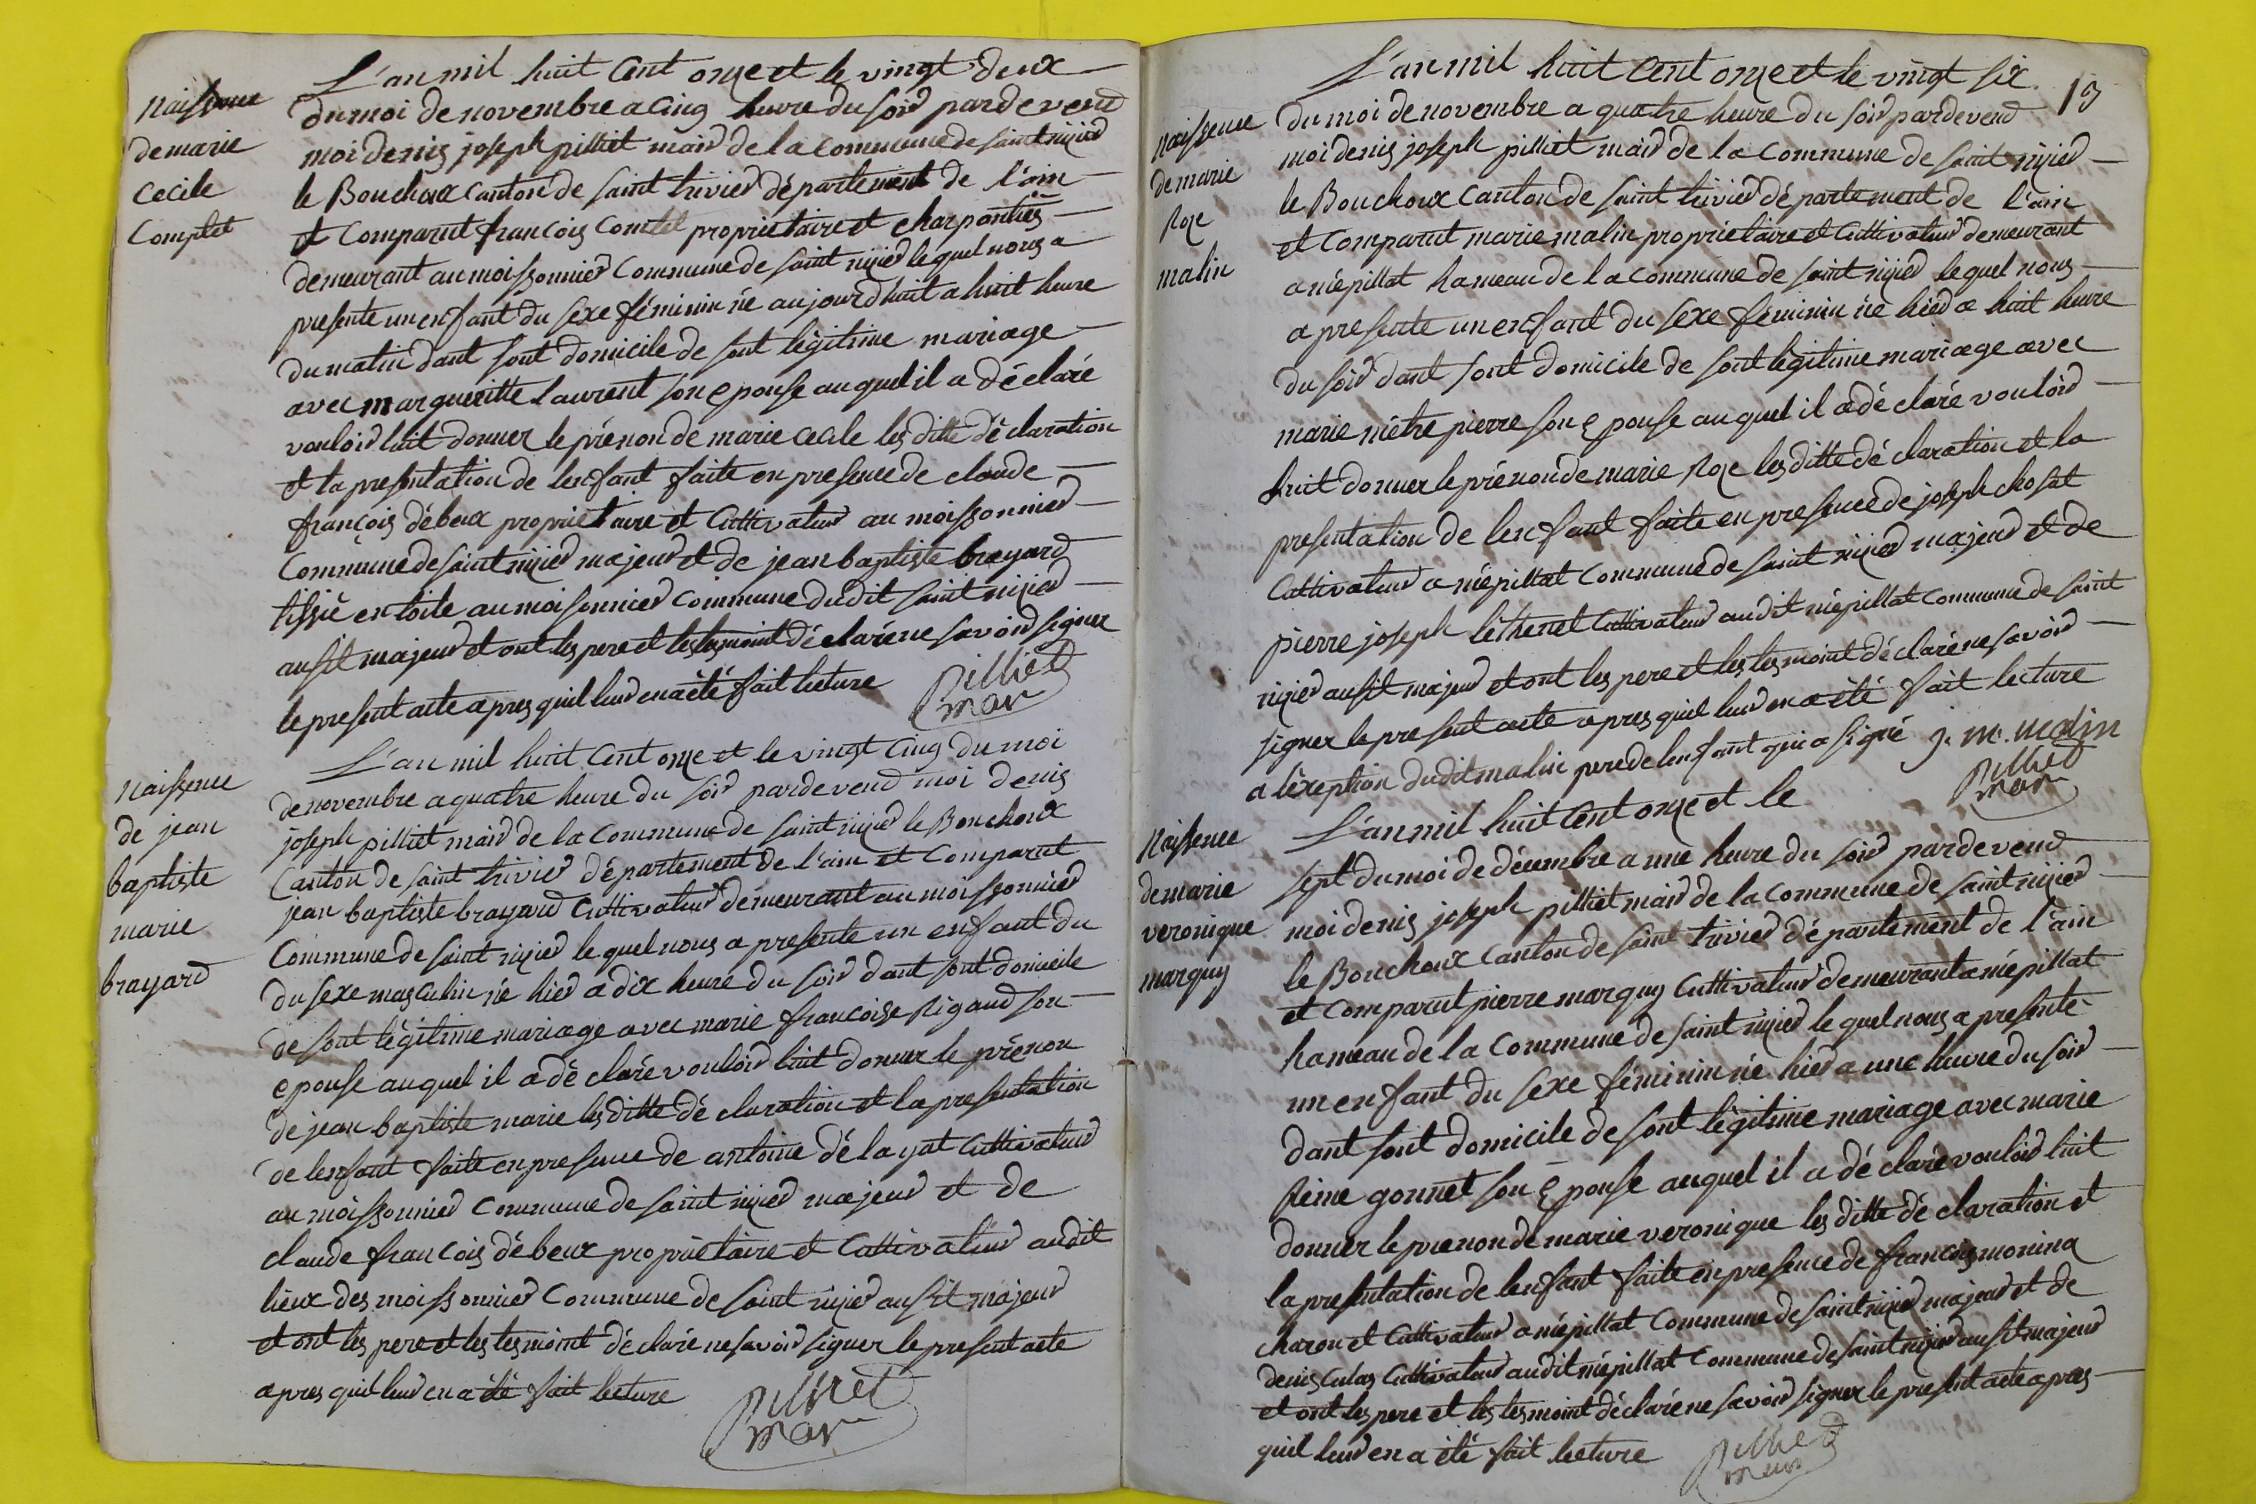 Naissence
de marie
cecile
Comptet
L'an mil huit Cent onze et le vingt deux
du moi de novembre a cinq heure du soir par devend
moi denis joseph pilliet mair de la commune de saint nizier
le Bouchoux canton de saint trivier département de l'ain
et Comparut francois Comtet proprietaire et charpontier
demeurant au moissonnier Commune de saint nizier le quel nous a
presente un enfant du sexe féminin né aujourdhuit a huit heure
du matin dant sont domicile de sont légitime mariage
avec margueritte laurent son epouse au quel il a déclaré
vouloir luit donner le prénon de marie cecile les ditte déclaration
et la presentation de lenfant faite en presence de claude
françois débeux proprietaire et Cultivateur au moissonnier
Commune de saint nizier majeur et de jean baptiste brayard
tissié en toile au moisonnier Commune dudit saint nizier
ausit majeur et ont les pere et les tesmoint déclaré ne savoir signer
le present acte apres quil leur en a été fait lecture
Pilliet
mair
Naissence
de jean
baptiste
marie
brayard
L'an mil huit Cent onze et le vingt cinq du moi
de novembre a quatre heure du soir par devend moi denis
joseph pilliet mair de la Commune de saint nizier le Bouchoux
Canton de saint trivier département de l'ain et Comparut
jean baptiste brayard Cultivateur demeurant au moissonnier
Commune de saint nizier le quel nous a presente un enfant du
du sexe masculin né hier a dix heure du soir dant sont domicile
de sont légitime mariage avec marie francoise Rigaud son
epouse au quel il a dé claré vouloir luit donner le prénon
de jean baptiste marie les ditte dé claration et la presentation
de lenfant faite en presence de antoine délayat Cultivateur
au moissonnier Commune de saint nizier majeur et de
claude francois débeux proprietaire et Cultivateur audit
lieux des moissonnier Commune de saint nizier ausit majeur
et ont les pere et les tesmoint déclaré ne savoir signer le present acte
apres quil leur en a été fait lecture
Pilliet
mair
19
Naissence
de marie
Roze
malin
L'an mil huit Cent onze et le vingt six
du moi de novembre a quatre heure du soir par devend
moi denis joseph pilliet mair de la Commune de saint nizier
le Bouchoux Canton de saint trivier département de l'ain
et Comparut marie malin proprietaire et Cultivateur demeurant
a népillat hameau de la commune de saint nizier le quel nous
a presente un enfant du sexe féminin né hier a huit heure
du soir dant sont domicile de sont légitime mariage avec
marie nétre pierre son epouse au quel il a dé claré vouloir
luit donner le prénon de marie Roze les ditte dé claration et la
presentation de lenfant faite en presence de joseph chosat
Cultivateur a népillat Commune de saint nizier majeur et de
pierre joseph léthenet Cultivateur audit népillat Commune de saint
nizier ausit majeur et ont les pere et les tesmoint déclaré ne savoir
signer le present acte apres quil leur en a été fait lecture
a léxeption dudit malin pere de lenfant qui a signé j. m. malin
Pilliet
mair
Naissence
de marie
veronique
marguy
L'an mil huit Cent onze et le
sept du moi de décembre a une heure du soir par devend
moi denis joseph pilliet mair de la Commune de saint nizier
le Bouchoux Canton de saint trivier département de l'ain
et Comparut pierre marguy Cultivateur demeurant a népillat
hameau de la Commune de saint nizier le quel nous a presente
un enfant du sexe féminin né hier a une heure du soir
dant sont domicile de sont légitime mariage avec marie
Reine gonnet son epouse au quel il a dé claré vouloir luit
donner le prenon de marie veronique les ditte dé claration et
la presentation de lenfant faite en presence de francois monina
charon et Cultivateur a népillat Commune de saint nizier majeur et de
denis Culas Cultivateur audit népillat Commune de saint nizier ausit majeur
et ont les pere et les tesmoint déclaré ne savoir signer le present acte apres
quil leur en a été fait lecture
Pilliet
mair